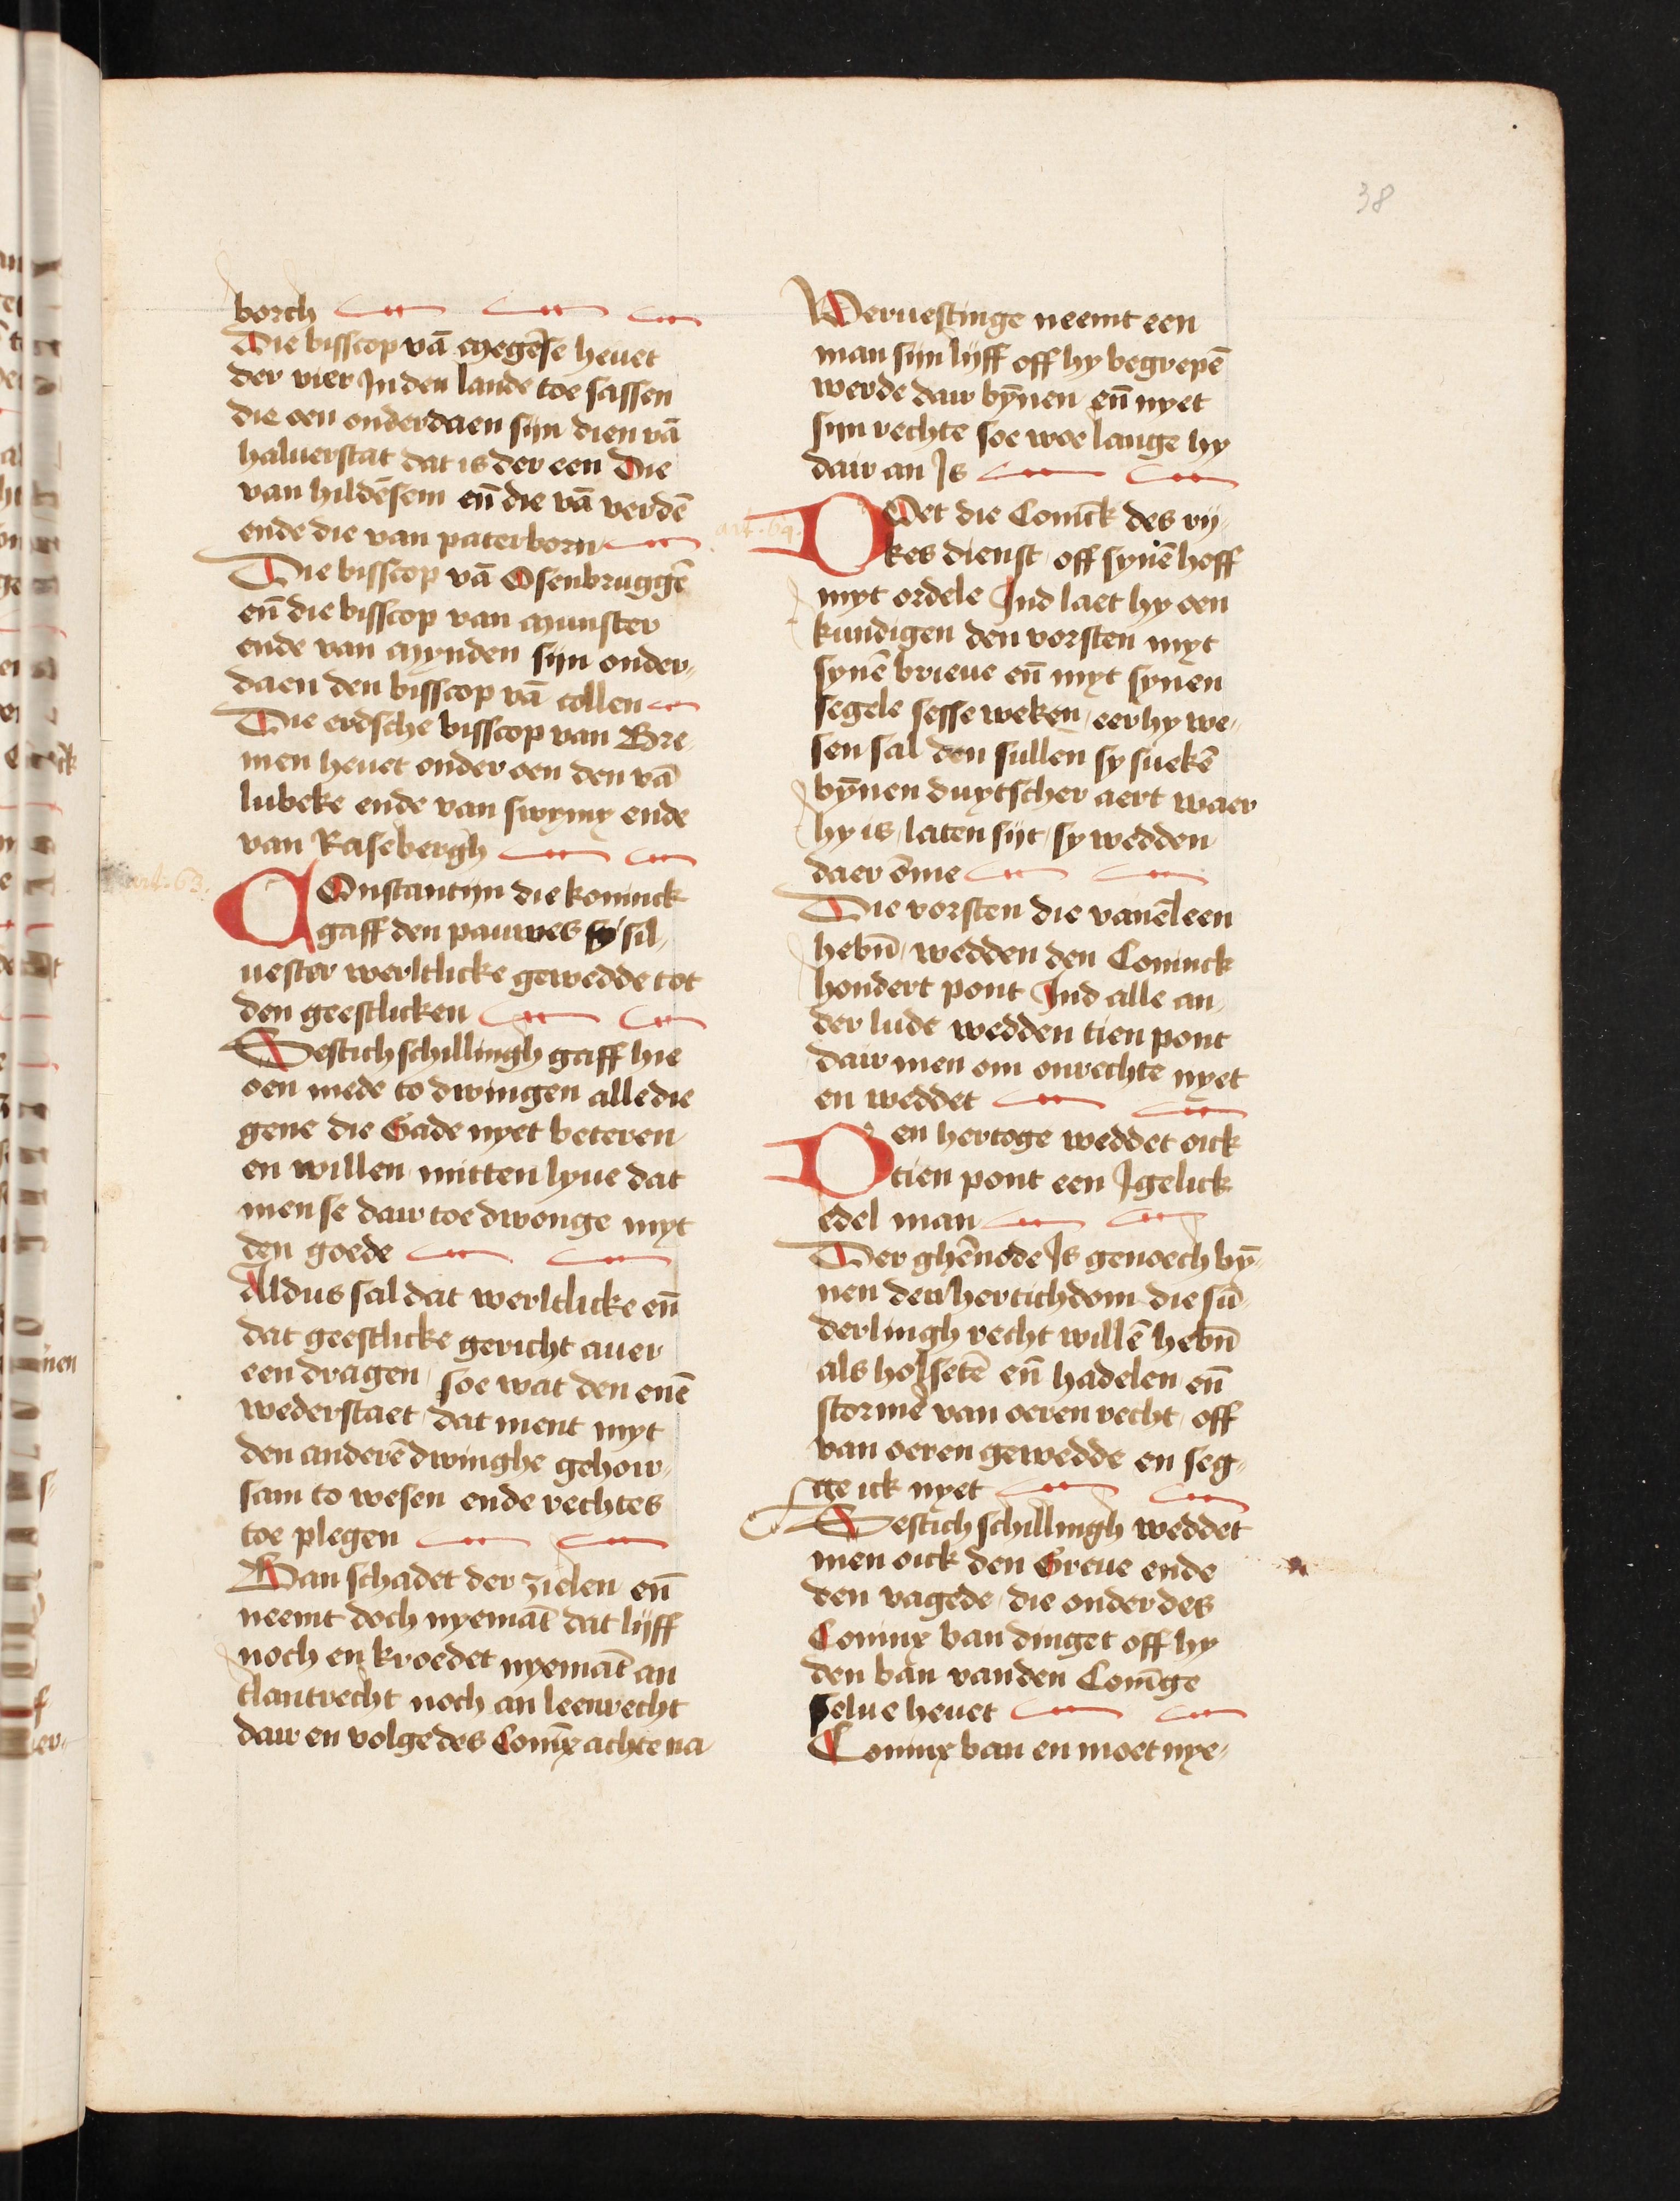 38
borch
Die bisscop vā Megēse heuet
der vier Jnden lande toe sassen
die oen onderdaen sijn dien vā
haluerstat dat is der een Die
van hildēsem eñ die vā verdē
ende die van paterborn
Die bisscop vā Osenbruggē
eñ die bisscop van Munster
ende van Mynden sijn onder-
daen den bisscop vā collen
Die erdsche bisscop van Bre-
men heuet onder oen den vā
lubeke ende van swyny ende
van Rasebergh
art. 63.
COnstantijn die koninck
gaff den pauwes sil-
uester werltlicke gewedde tot
den geestlicken
Sestich schillingh gaff hie
oen mede to dwingen alle die
gene die Gade nyet beteren
en willen mitten lyue dat
men se dair toe dwonge myt
den goede
Aldus sal dat werltlicke eñ
dat geestlicke gericht auer
een dragen soe wat den enē
wederstaet dat ment myt
den anderē dwinghe gehoir-
sam to wesen ende rechtes
toe plegen
Ban schadet der zielen eñ
neemt doch nyemāt dat lijff
noch en kroedet nyemāt an
tlantrecht noch an leenrecht
dair en volge des Conīx achte na
Veruestinge neemt een
man sijn lijff off hy begrepē
werde dair bȳnen eñ nyet
sijn rechte soe woe lange hy
dair an Js
art. 64.
DOet die Conīck des rij-
kes dienst off synē hoff
myt ordele Jnd laet hy oen
kundigen den vorsten myt
synē brieue eñ myt synen
segele sesse weken eer hy we-
sen sal den sullen sy suekē
bȳnen duytscher aert waer
hy is laten sijt sy wedden
daer ōme
Die vorsten die vanēleen
hebñ wedden den Coninck
hondert pont Jnd alle an-
der lude wedden tien pont
dair men om onrechte nyet
en weddet
Den hertoge weddet oick
tien pont een Jgelick
edel man
Der ghēnode Js genoech bȳ-
nen den hertichdom die sū-
derlingh recht willē hebñ
als holsetē eñ hadelen eñ
stormē van oeren recht off
van oeren gewedde en seg-
ge ick nyet
Sestich schillingh weddet
men oick den Greue ende
den vagede die onder des
Coninx ban dinget off hy
den ban vanden Conīge
selue heuet
Coninx ban en moet nye-